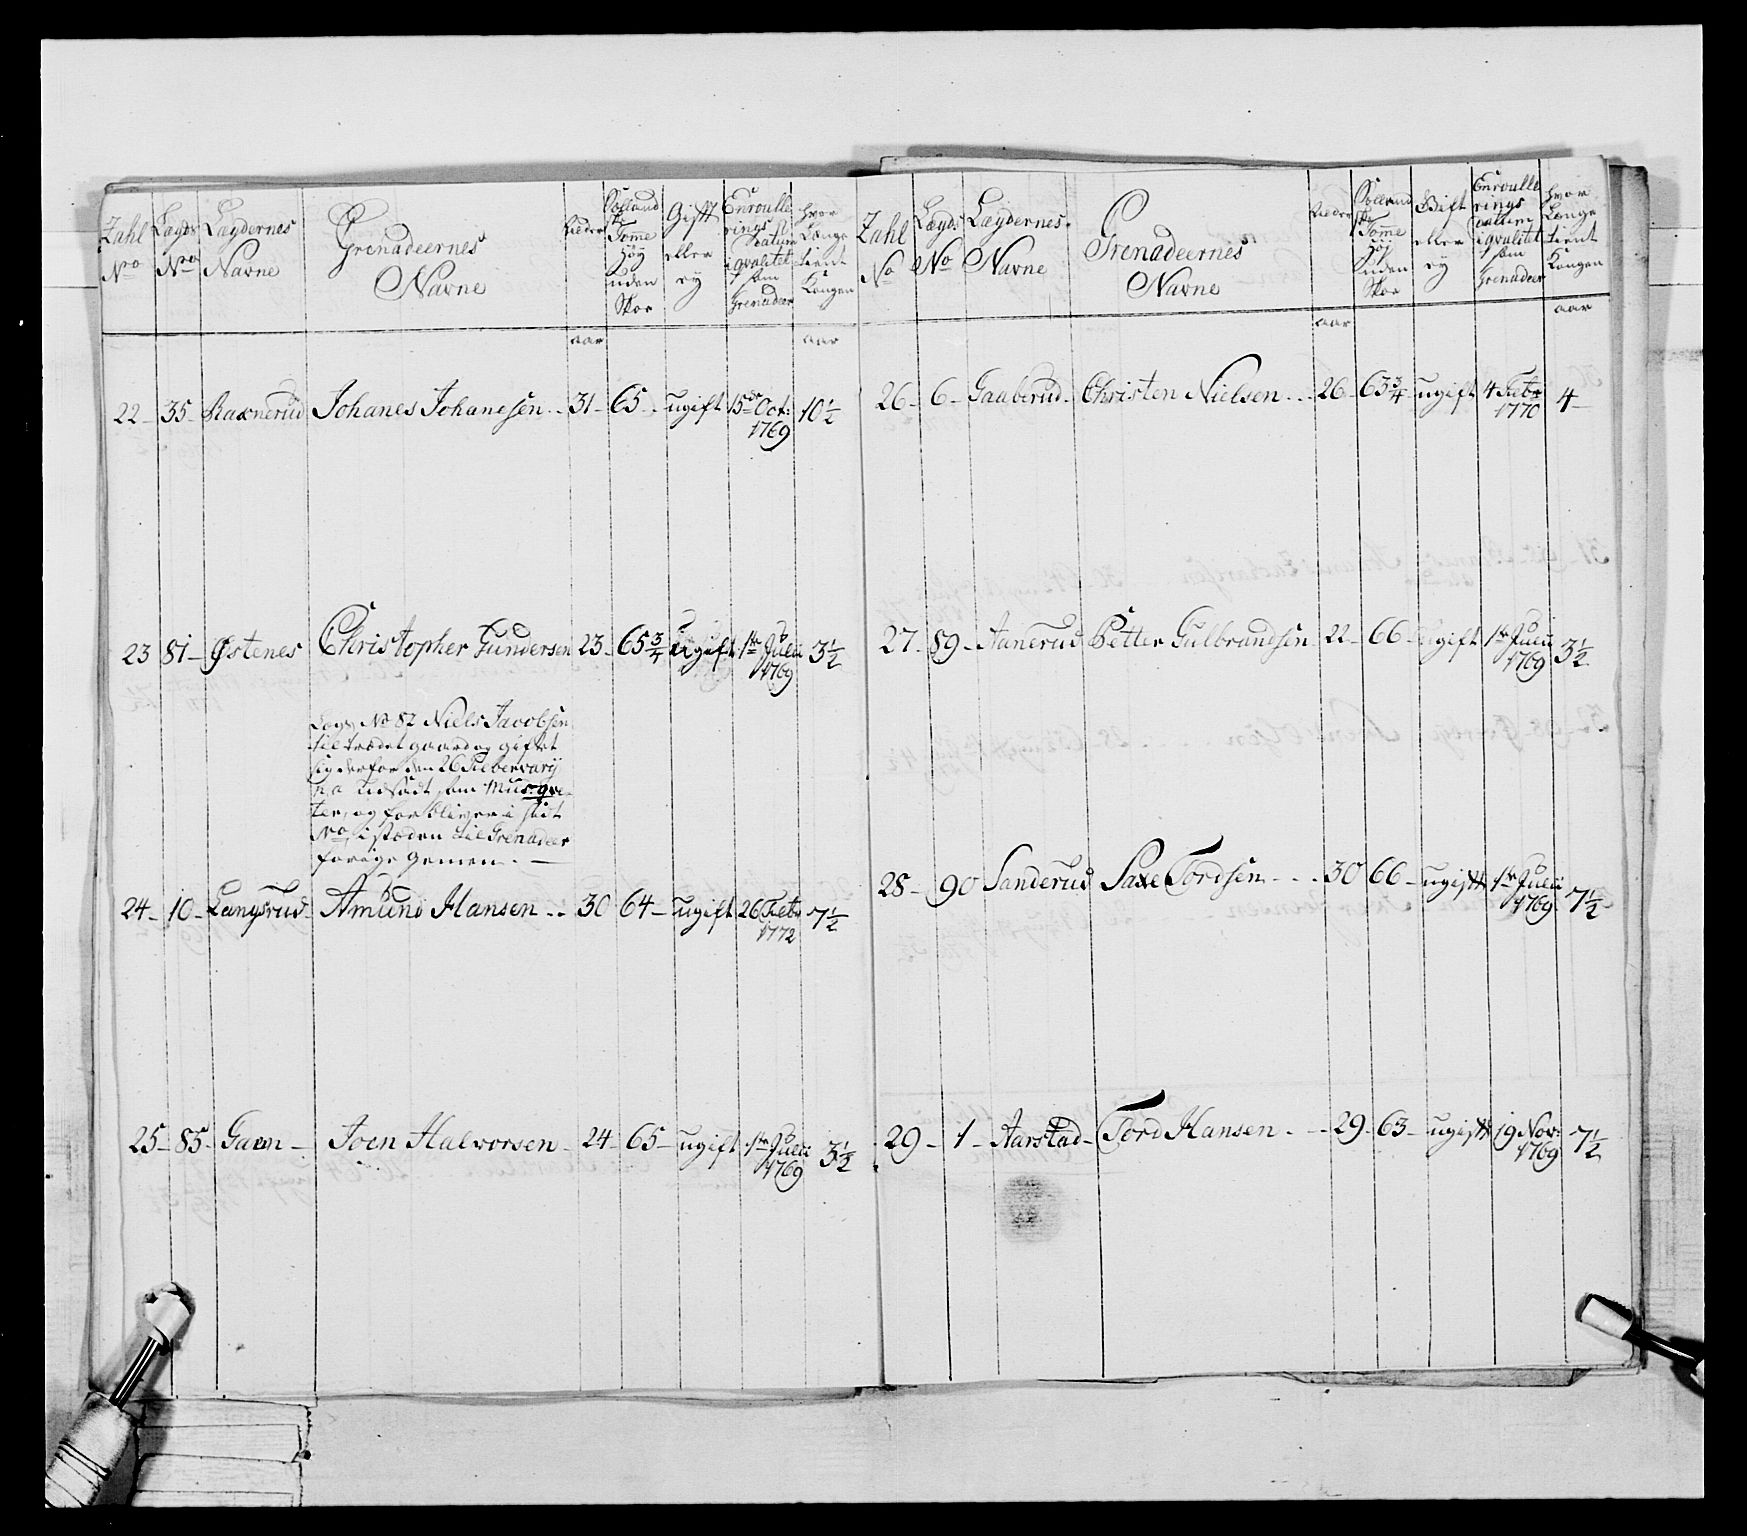 Zahl No
Lægds No
Lægdernes Navne
Grenadeernes Navne
Alder
Holland ske Tomme Høy uden Skoe
Gift eller ey
Enroulle rings Datum i qvalitet som Grenadeer
hvor Længe tient Kongen
aar
aar
22 - 35 - Raxnerud Johanes Johanesen - 31 - 65 - ugift 15de Oct: 1769 10 1/2
23 81 - Østenes Christopher Gundersen 23 - 65 3/4 ugift 1te Julii 1769 3 1/2
No 82 Niels Jacobsen
gaard og giftet
sig derfor den 26 Februarij
Musqve-
ter, og forbliver i sidt
No, i stæden til Grenadeer
forrige Gemen -
24 - 10 - Langsrud Amund Hansen - 30 64 - ugift 26 Febr 1772 7 1/2
25 - 85 - Garen - Joen Halvorsen - 24 - 65 - ugift 1te Julii 1769 3 1/2
Zahl No
Lægds No
Lægdernes Navne
Grenadeernes Navne
Alder
Holland ske Tomme Høj uden Skoe
Gift eller ey
Enroulle rings Datum i qvalitet som Grenadeer
hvor Længe tient Kongen
aar
aar
26 - 6 - Gaaberud - Christen Nielsen - 26 - 63 3/4 ugift 4 Febr 1770 4 -
27 - 89 - Aanerud Petter Gulbrandsen 22 - 66 - ugift 1te Julii 1769 3 1/2
28 - 90 Sanderud Saxe Tordsen - 30 66 - ugift 1te Julii 1769 7 1/2
29 - 1 - Aarstad - Tord Hansen - 29 - 63 - ugift 19 Nov: 1769 7 1/2